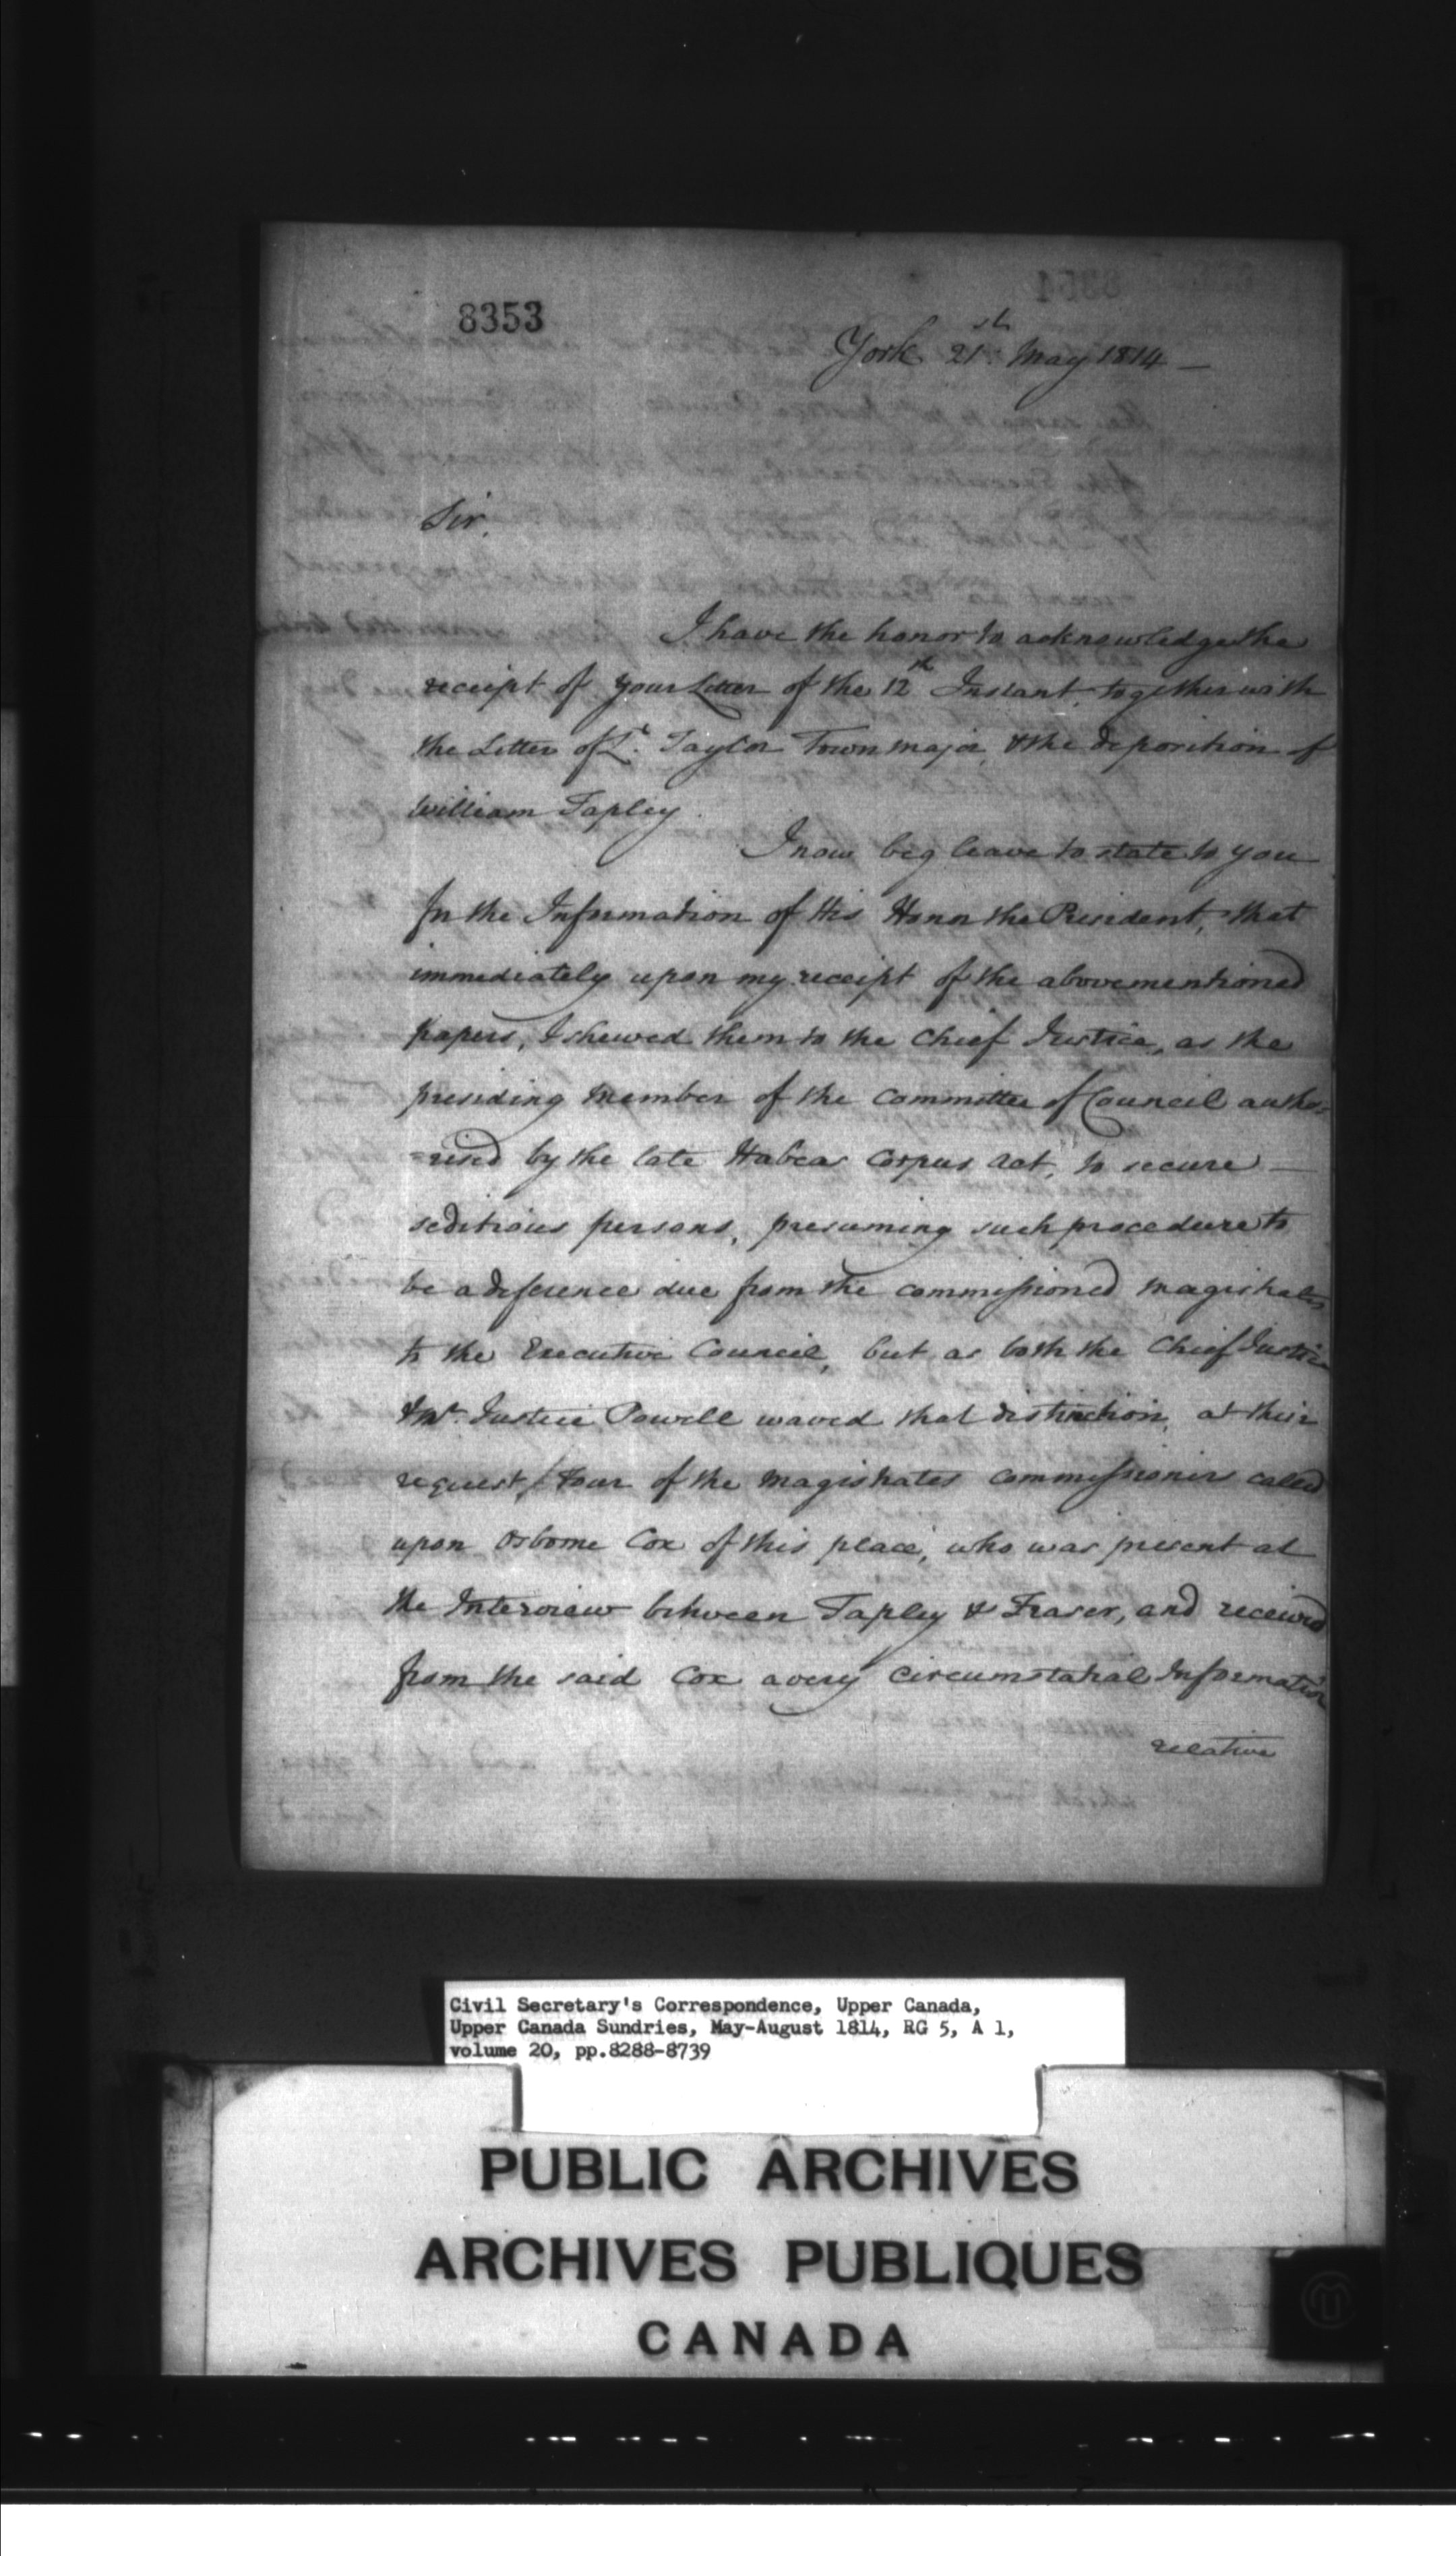 8353
York 21st May 1814 —
Sir,
I have the honor to acknowledge the
receipt of your Letter of the 12th Instant, together with
the Letter of Lt. Taylor Town major, & the deposition of
William Tapley.
I now beg leave to state to you
for the Information of His Honor the President, that
immediately upon my receipt of the abovementioned
papers, I shewed them to the Chief Justice, as the
presiding member of the Committee of Council autho=
=rised by the late Habeas Corpus Act, to secure —
seditious persons, presuming such procedure to
be a deference due from the commissioned magistrates
to the Executive Council, but as both the Chief Justice
& Mr. Justice Powell waved that distinction, at their
request, four of the magistrates commissioners called
upon Osborne Cox of this place, who was present at
the Interview between Tapley & Fraser, and received
from the said Cox a very circumstatial Information
relative
Civil Secretary's Correspondence, Upper Canada,
Upper Canada Sundries, May-August 1814, RG 5, A 1,
volume 20, pp.8288-8739
PUBLIC ARCHIVES
ARCHIVES PUBLIQUES
CANADA